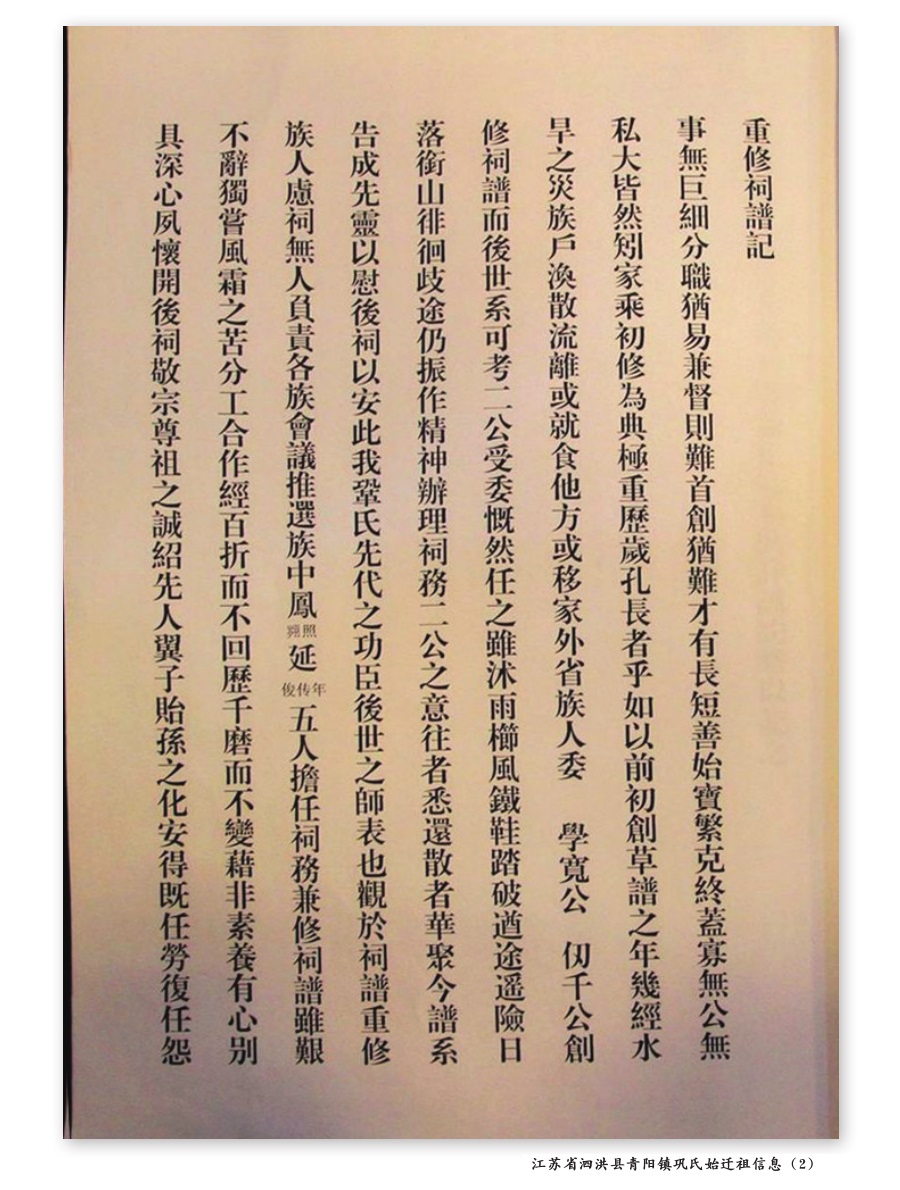 重修祠譜記
事無巨細分職猶易兼督則難首創猶難才有長短善始寶繁克終蓋寡無公無
私大皆然矧家乘初修為典極重歷歲孔長者乎如以前初創草譜之年幾經水
旱之災族戶渙散流離或就食他方或移家外省族人委 學寬公 仭千公創
修祠譜而後世系可考二公受委慨然任之雖沭雨櫛風鐵鞋踏破遒途遥險日
落銜山徘徊歧途仍振作精神辦理祠務二公之意往者悉還散者華聚今譜系
告成先靈以慰後祠以安此我鞏氏先代之功臣後世之師表也觀於祠譜重修
族人慮祠無人負責各族會議推選族中鳳照翙延年传俊五人擔任祠務兼修祠譜雖艱
不辭獨嘗風霜之苦分工合作經百折而不回歷千磨而不變藉非素養有心別
具深心夙懷開後祠敬宗尊祖之誠紹先人翼子貽孫之化安得既任勞復任怨
江苏省泗洪县青阳镇巩氏始迁祖信息（2）